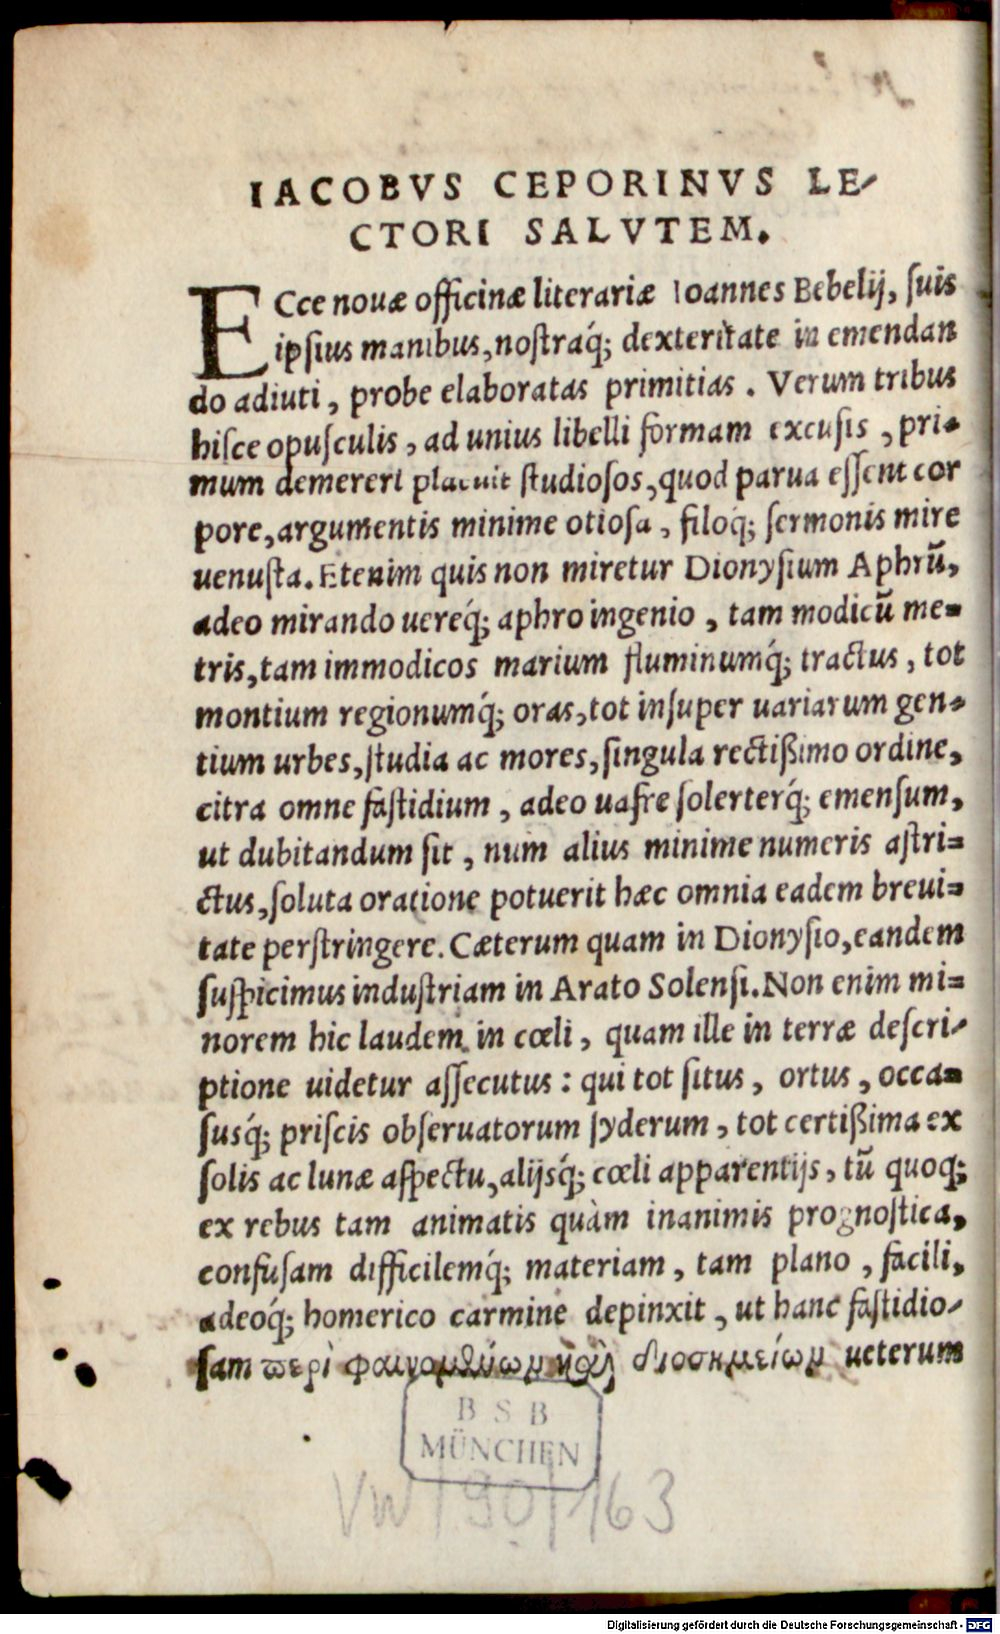 IACOBVS CEPORINVS LE-
CTORI SALVTEM.
ECce nouæ officinæ literariæ Ioannes Bebelij, suis
ipsius manibus, nostraq́; dexteritate in emendan
do adiuti, probe elaboratas primitias. Verum tribus
hisce opusculis, ad unius libelli formam excusis, pri-
mum demereri placuit studiosos, quod parua essent cor
pore, argumentis minime otiosa, filoq́; sermonis mire
uenusta. Etenim quis non miretur Dionysium Aphrū,
adeo mirando uereq́; aphro ingenio, tam modicū me-
tris, tam immodicos marium fluminumq́; tractus, tot
montium regionumq́; oras, tot insuper uariarum gen-
tium urbes, studia ac mores, singula rectißimo ordine,
citra omne fastidium, adeo uafre solerterq́; emensum,
ut dubitandum sit, num alius minime numeris astri-
ctus, soluta oratione potuerit hæc omnia eadem breui-
tate perstringere. Cæterum quam in Dionysio, eandem
suspicimus industriam in Arato Solensi. Non enim mi-
norem hic laudem in cœli, quam ille in terræ descri-
ptione uidetur assecutus: qui tot situs, ortus, occa-
susq́; priscis obseruatorum syderum, tot certißima ex
solis ac lunæ aspectu, alijsq́; cœli apparentijs, tū quoq;
ex rebus tam animatis quàm inanimis prognostica,
confusam difficilemq́; materiam, tam plano, facili,
adeoq́; homerico carmine depinxit, ut hanc fastidio-
sam περὶ φαινομένων καὶ διοσημείων ueterum
B S B
MÜNCHEN
VW/90/163
Digitalisierung gefördert durch die Deutsche Forschungsgemeinschaft - DFG